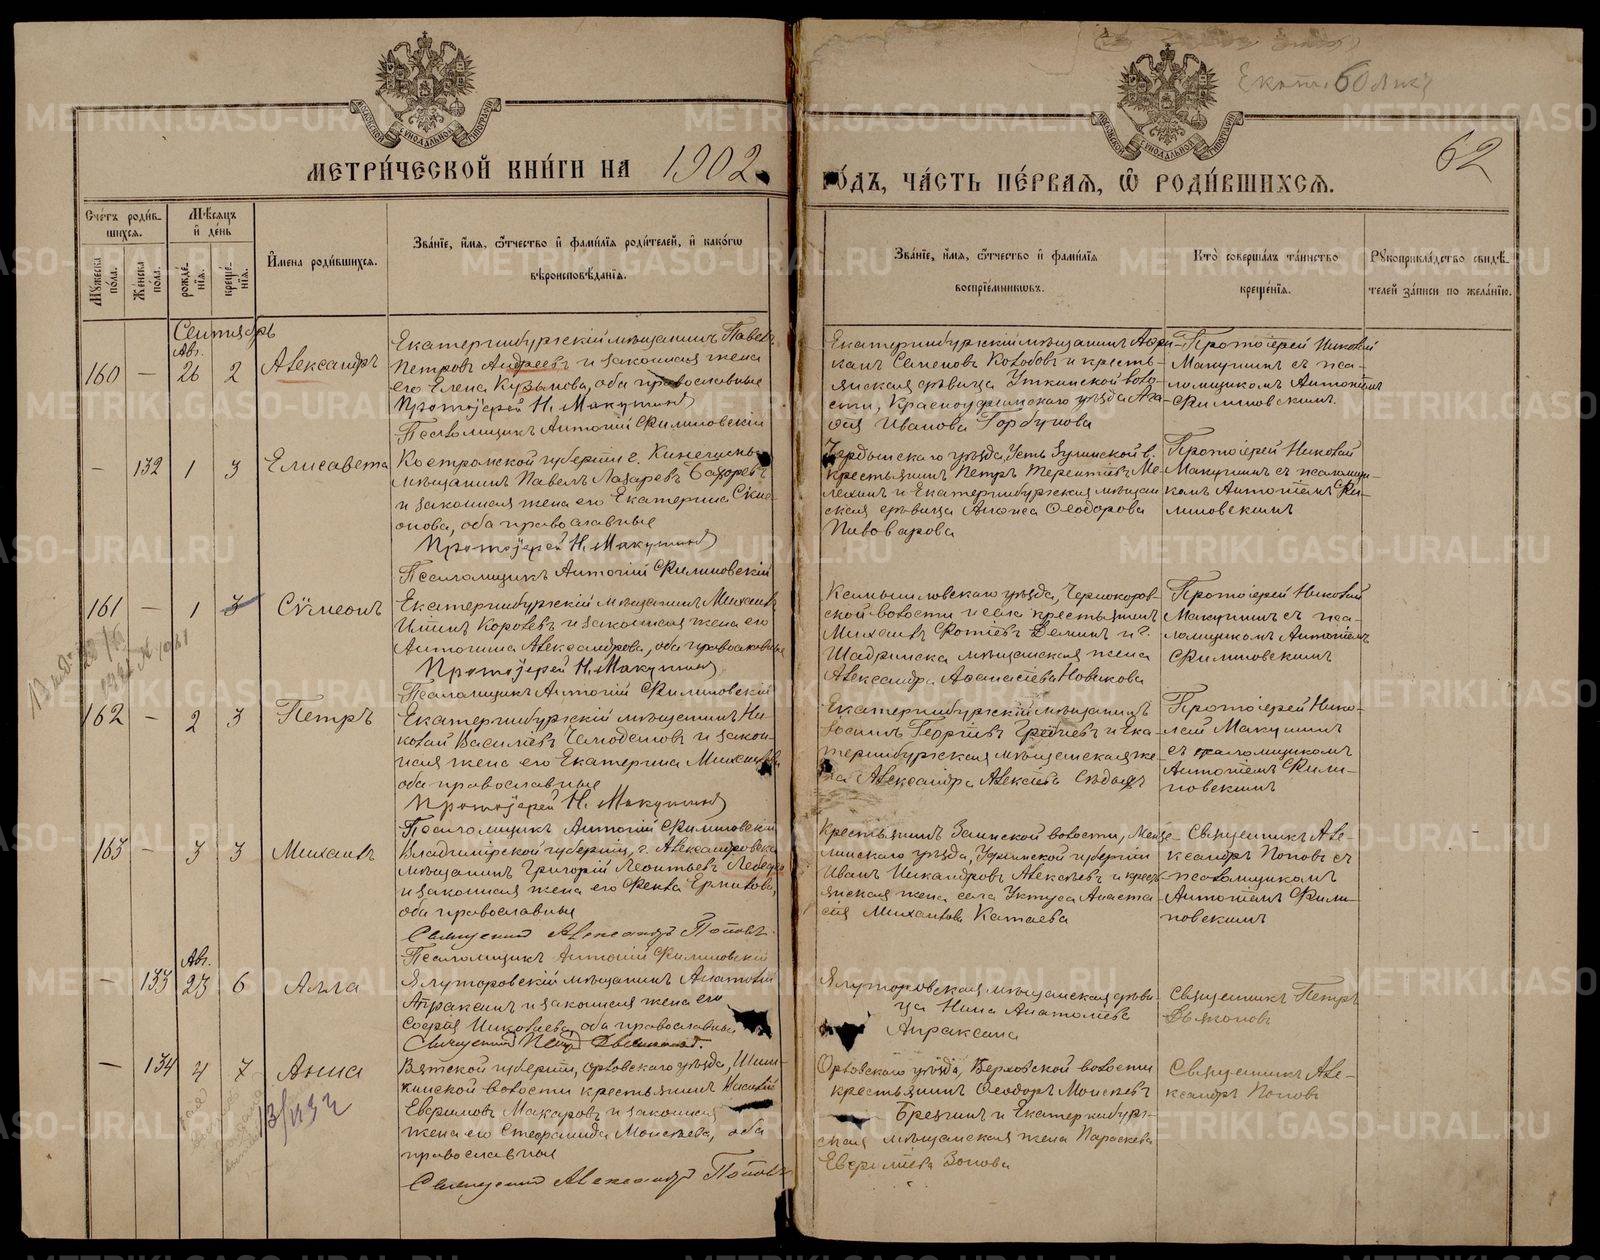 Екат. 60 лик
МЕТРИ́ЧЕСКОЙ КНИ́ГИ НА 1902
ГО́ДЪ, ЧА́СТЬ ПЕ́РВАЯ, Ѡ РОДИ́ВШИХСЯ.
62
Сче́тъ роди́в-
шихся.
Мѣ́сяцъ
и де́нь
Му́жеска по́ла.
Же́нска по́ла.
рожде́-
нїя.
креще́-
нїя.
И́мена роди́вшихся.
Зва́нїе, и́мя, ѻ́тчество и фами́лїя роди́телей, и како́гѡ
вѣроисповѣ́данїя.
Зва́нїе, и́мя, ѻ́тчество и фами́лїя
воспрїе́мникѡвъ.
Кто̀ соверша́лъ та́инство
креще́нїя.
Рꙋкоприкла́дство свидѣ́-
телей за́писи по жела́нїю.
Сентябрь
160
—
Авг.
26
2
Александръ
Екатеринбургскій мѣщанинъ Павелъ
Петровъ Андреевъ и законная жена
его Елена Кузьмова, оба православные
Протоіерей Н. Макушинъ
Псаломщикъ Антоній Филиновскій
Екатеринбургскій мѣщанинъ Афри-
канъ Семеновъ Колобовъ и кресть-
янская дѣвица Уткинской воло-
сти, Красноуфимскаго уѣзда Ага-
фія Иванова Горбунова
Протоіерей Николай
Макушинъ съ пса-
ломщикомъ Антоніемъ
Филиновскимъ.
—
132
1
3
Елисавета
Костромской губерніи г. Кинешмы
мѣщанинъ Павелъ Лазаревъ
и законная жена его Екатерина
оба православные
Протоіерей Н. Макушинъ
Псаломщикъ Антоній Филиновскій
уѣзда, Усть
крестьянинъ Петръ Терентіевъ Ме-
лехинъ и Екатеринбургская мѣщан-
ская дѣвица Анфиса Ѳеодорова
Пивоварова
Протоіерей Николай
Макушинъ съ псаломщи-
комъ Антоніемъ Фи-
линовскимъ
161
—
1
3
Сѵмеонъ
Екатеринбургскій мѣщанинъ Михаилъ
Ильинъ Королевъ и законная жена его
Антонина Александрова, оба православные
Протоіерей Н. Макушинъ
Псаломщикъ Антоній Филиновскій
Камышловскаго уѣзда, Черемхов-
ской волости и села крестьянинъ
Михаилъ Фотіевъ Деминъ и г.
Шадринска мѣщанская жена
Александра Аѳанасіева Новикова
Протоіерей Николай
Макушинъ съ пса-
ломщикомъ Антоніемъ
Филиновскимъ
162
—
2
3
Петръ
Екатеринбургскій мѣщанинъ Ни-
колай Василіевъ Чемодановъ и закон-
ная жена его Екатерина Михаилова
оба православные
Протоіерей Н. Макушинъ
Псаломщикъ Антоній Филиновскій
Екатеринбургскій мѣщанинъ
Георгіевъ и Ека-
теринбургская мѣщанская же-
на Александра Алексіева Сѣдыхъ
Протоіерей Нико-
лай Макушинъ
съ псаломщикомъ
Антоніемъ Фили-
новскимъ
163
—
3
3
Михаилъ
Владимірской губерніи, г. Александровска
мѣщанинъ Григорій Леонтьевъ Лебедевъ
и законная жена его Фекла Ермилова,
оба православные
Священникъ Александръ Поповъ
Псаломщикъ Антоній Филиновскій
Крестьянинъ Заинской волости, Мензе-
линскаго уѣзда, Уфимской губерніи
Иванъ Никандровъ Алексѣевъ и кресть-
янская жена села Уктуса Анаста-
сія Михаилова Катаева
Священникъ Але-
ксандръ Поповъ съ
псаломщикомъ
Антоніемъ Фили-
новскимъ
—
133
Авг.
23
6
Алла
Ялуторовскій мѣщанинъ Анатолій
Апраксинъ и законная жена его
Софія Николаева, оба православные
Священникъ Петръ Дьяконовъ.
Ялуторовская мѣщанская дѣви-
ца Нина Анатоліева
Апраксина
Священникъ Петръ
Дьяконовъ
—
134
4
7
Анна
Вятской губерніи, Орловскаго уѣзда,
волости крестьянинъ
Евфимовъ Макаровъ и законная
жена его Стефанида Моисѣева, оба
православные
Священникъ Александръ Поповъ
Орловскаго уѣзда, Верховской волости
крестьянинъ Ѳеодоръ Моисѣевъ
и Екатеринбург-
ская мѣщанская жена Параскева
Евфиміева Зопова
Священникъ Але-
ксандръ Поповъ
METRIKI.GASO-URAL.RU